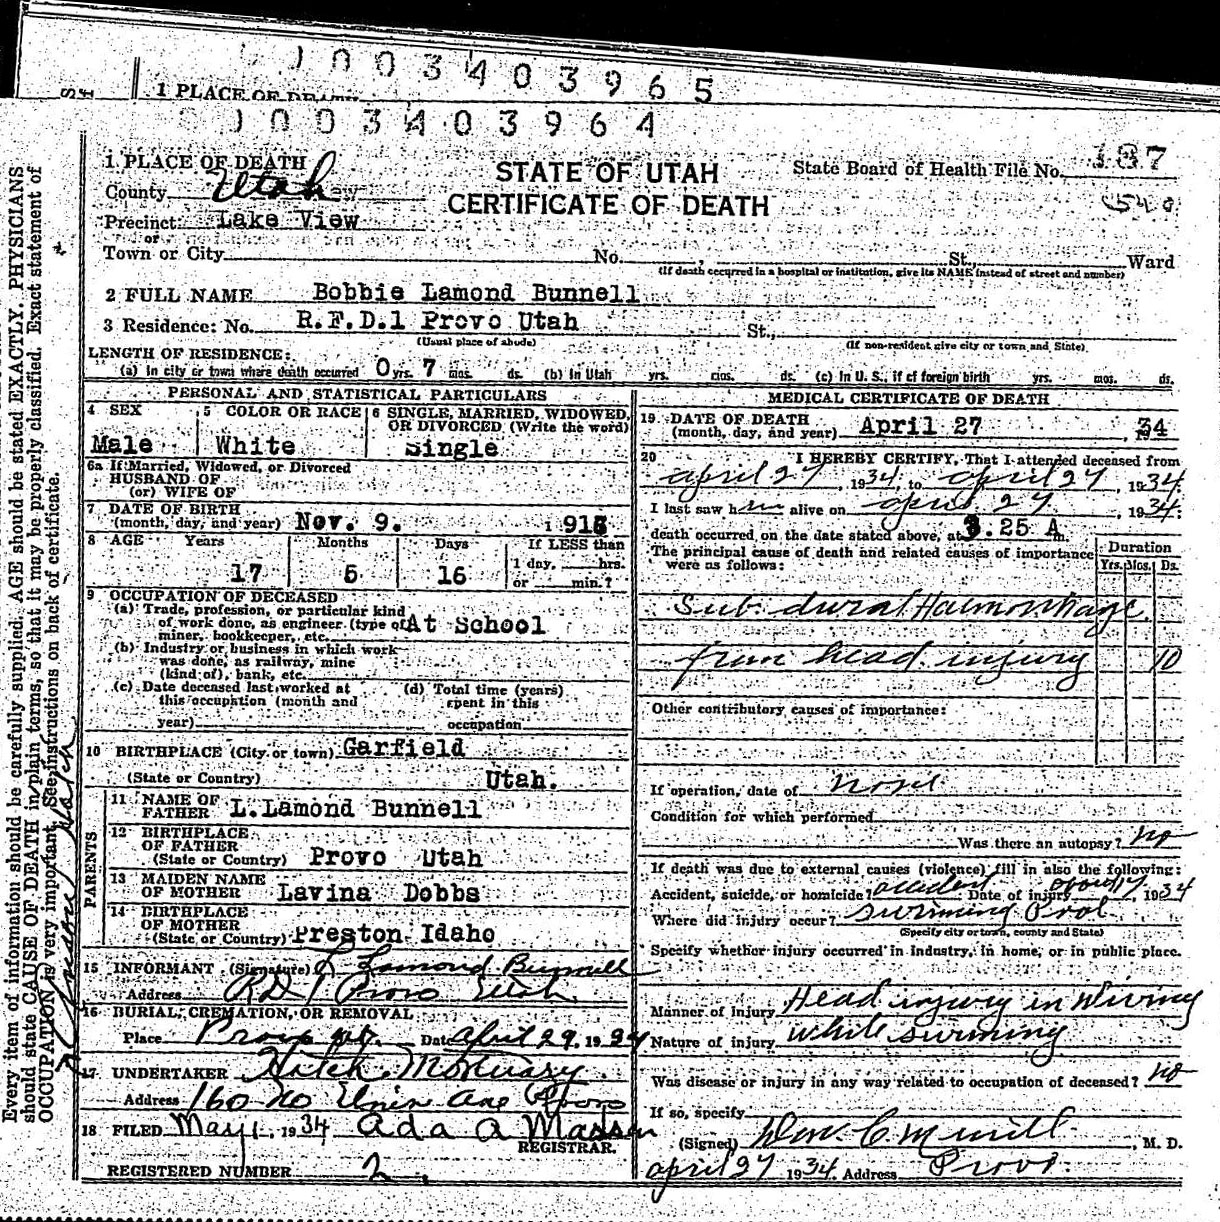 1 PLACE OF DEATH
STATE OF UTAH
CERTIFICATE OF DEATH
State Board of Health File No. 187
County Utah
Precinct Lake View
or
Town or City No. St., Ward
(If death occurred in a hospital or institution, give its NAME instead of street and number)
2 FULL NAME Bobbie Lamond Bunnell
3 Residence: No. R.F.D.1 Provo Utah St.,
(Usual place of abode) (If non-resident give city or town and State)
LENGTH OF RESIDENCE:
(a) In city or town where death occurred 0 yrs. 7 mos. ds. (b) In Utah yrs. mos. ds. (c) In U. S., if of foreign birth yrs. mos. ds.
PERSONAL AND STATISTICAL PARTICULARS
4 SEX Male
5 COLOR OR RACE White
6 SINGLE, MARRIED, WIDOWED, OR DIVORCED (Write the word) Single
6a If Married, Widowed, or Divorced
HUSBAND OF
(or) WIFE OF
7 DATE OF BIRTH
(month, day, and year) Nov. 9. 191
8 AGE Years Months Days If LESS than
17 5 16 1 day, hrs.
or min.?
9 OCCUPATION OF DECEASED
(a) Trade, profession, or particular kind
of work done, as engineer (type of At School
miner, bookkeeper, etc.
(b) Industry or business in which work
was done, as railway, mine
(kind of), bank, etc.
(c) Date deceased last worked at
this occupation (month and
year)
(d) Total time (years)
spent in this
occupation
10 BIRTHPLACE (City or town) Garfield
(State or Country) Utah.
PARENTS
11 NAME OF FATHER L. Lamond Bunnell
12 BIRTHPLACE OF FATHER
(State or Country) Provo Utah
13 MAIDEN NAME OF MOTHER Lavina Dobbs
14 BIRTHPLACE OF MOTHER
(State or Country) Preston Idaho
15 INFORMANT (Signature) L Lamond Bunnell
Address RD 1 Provo Utah
16 BURIAL, CREMATION, OR REMOVAL
Place Provo Date April 29. 1934
17 UNDERTAKER Hatch Mortuary
Address 160 No Provo
18 FILED May 1, 1934 Ada A Madsen
REGISTRAR.
REGISTERED NUMBER 2
MEDICAL CERTIFICATE OF DEATH
19 DATE OF DEATH
(month, day, and year) April 27 34
20 I HEREBY CERTIFY, That I attended deceased from
april 27, 1934, to april 27, 1934.
I last saw him alive on april 27, 1934.
death occurred on the date stated above, at 3.25 A m.
The principal cause of death and related causes of importance
were as follows:
Duration
Yrs. Mos. Ds.
Sub. dural Haemorrhage
from head injury 10
Other contributory causes of importance:
If operation, date of none
Condition for which performed
Was there an autopsy? no
If death was due to external causes (violence) fill in also the following:
Accident, suicide, or homicide? accident Date of injury april 17, 1934
Where did injury occur? swimming Pool
(Specify city or town, county and State)
Specify whether injury occurred in industry, in home, or in public place.
Manner of injury Head injury in Diving
Nature of injury while swimming
Was disease or injury in any way related to occupation of deceased? no
If so, specify
(Signed) M. D.
april 27 1934. Address Provo.
Every item of information should be carefully supplied. AGE should be stated EXACTLY. PHYSICIANS
should state CAUSE OF DEATH in plain terms, so that it may be properly classified. Exact statement of
OCCUPATION is very important. See instructions on back of certificate.
1 PLACE OF DEATH
0 0 3 4 0 3 9 6 5
0 0 3 4 0 3 9 6 4